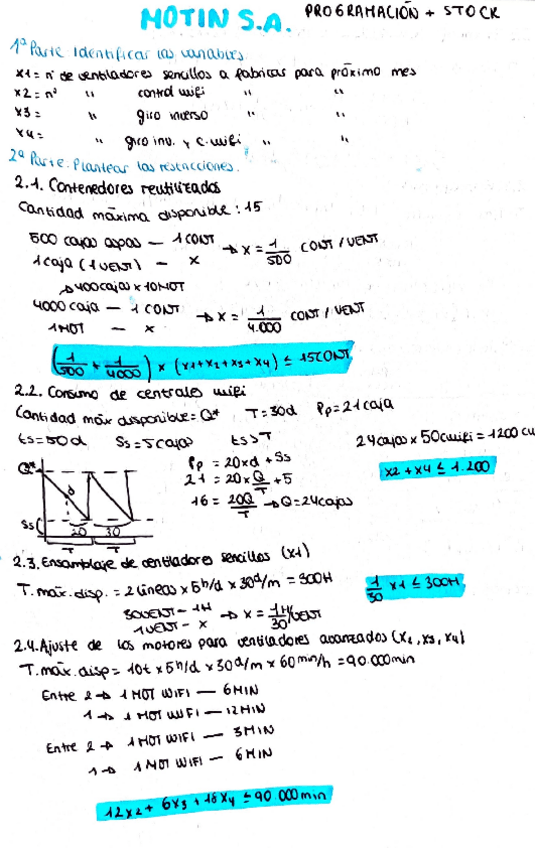 MOTIN S.A. PROGRAMACIÓN + STOCK
1ª Parte Identificar las variables
x1 = nº de ventiladores sencillos a fabricar para próximo mes
x2 = nº " control wifi " "
x3 = " giro inverso " "
x4 = " giro inv. y c. wifi " "
2ª Parte. Plantear las restricciones.
2.1. Contenedores reutilizados
Cantidad máxima disponible: 15
500 cajas aspas — 1 CONT → x = 1/500 CONT / VENT
1 caja (1 VENT) — x
→ 400 cajas x 10 MOT
4000 caja — 1 CONT → x = 1/4.000 CONT / VENT
1 MOT — x
(1/500 + 1/4000) x (x1+x2+x3+x4) ≤ 15 CONT
2.2. Consumo de centrales wifi
Cantidad máx disponible = Q* T = 30d Pp = 21 caja
ts = 50d Ss = 5 cajas ts > T 24 cajas x 50 cwifi = 1200 cu
Pp = 20xd + Ss
21 = 20 x Q/T + 5
16 = 20Q/T → Q = 24 cajas
x2 + x4 ≤ 1.200
Q*
d
Ss
20 30
T T
2.3. Ensamblaje de ventiladores sencillos (x1)
T. máx. disp. = 2 líneas x 5 h/d x 30 d/m = 300H
1/30 x1 ≤ 300H
30 VENT — 1H → x = 1H/30 VENT
1 VENT — x
2.4. Ajuste de los motores para ventiladores avanzados (x2, x3, x4)
T. máx. disp = 10t x 5 h/d x 30 d/m x 60 min/h = 90.000 min
Entre 2 → 1 MOT WIFI — 6 MIN
1 → 1 MOT WIFI — 12 MIN
Entre 2 → 1 MOT WIFI — 3 MIN
1 → 1 MOT WIFI — 6 MIN
12x2 + 6x3 + 18x4 ≤ 90 000 min